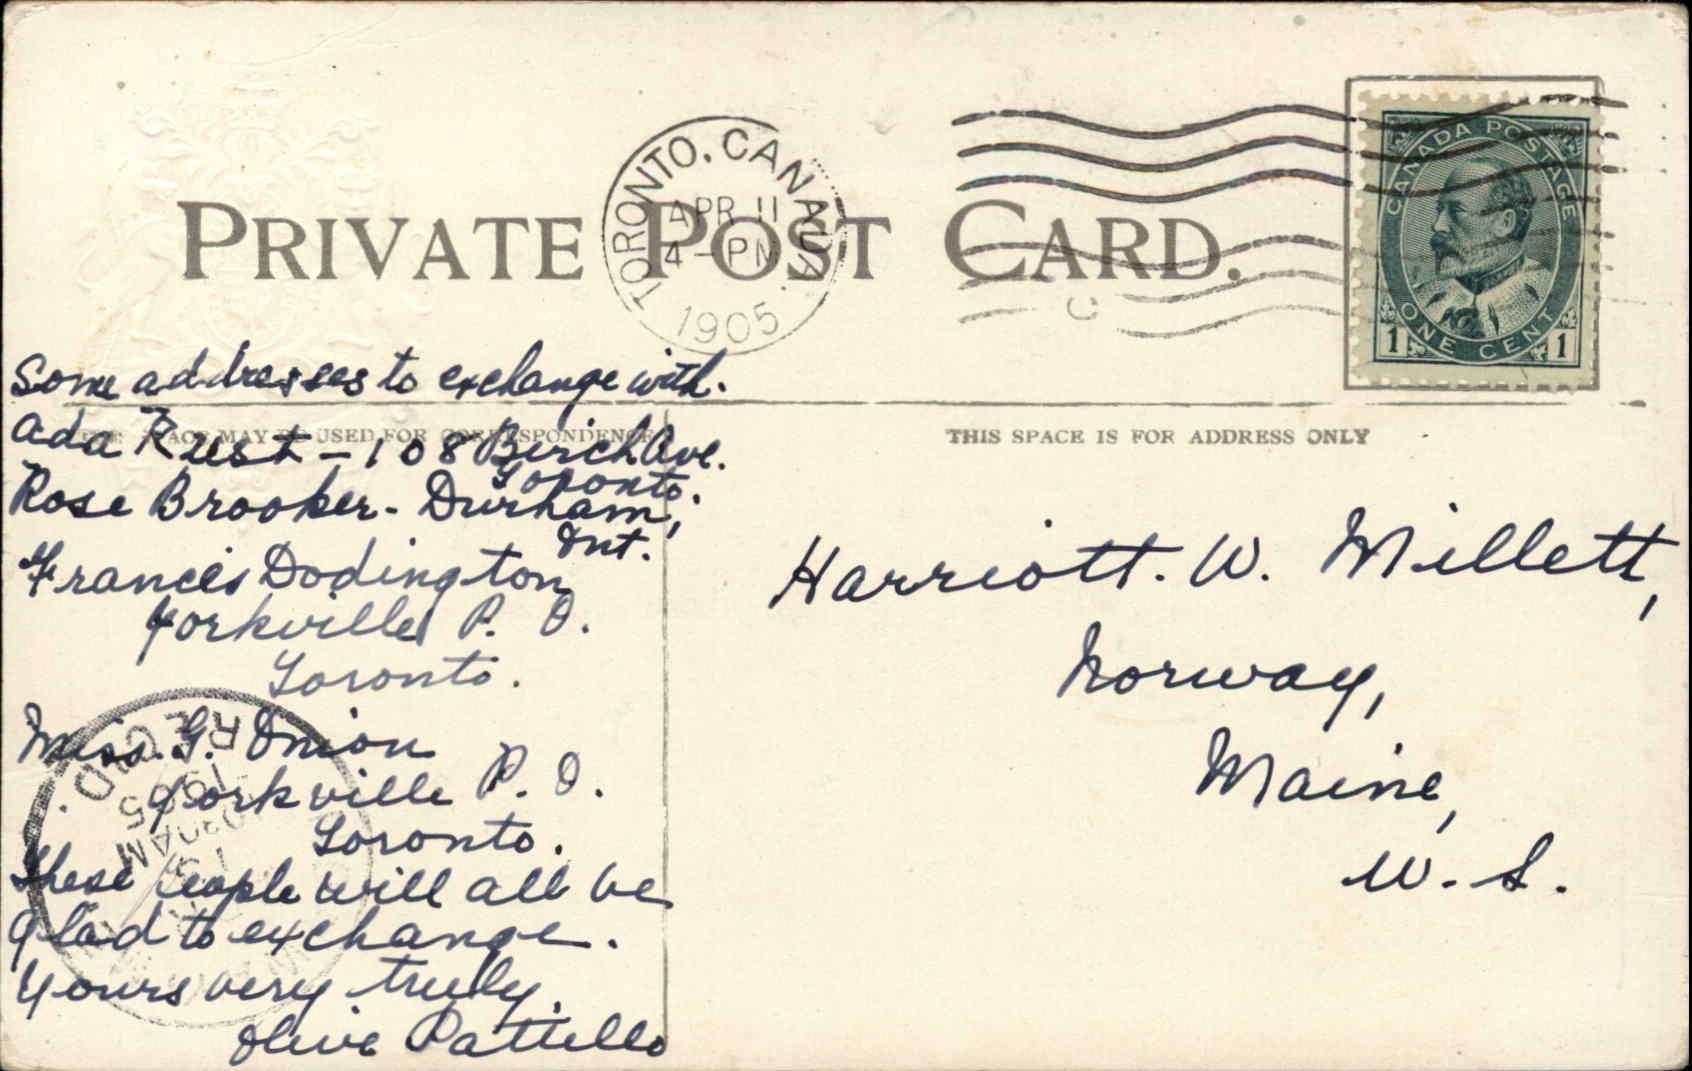 PRIVATE POST CARD.
TORONTO, CANADA.
APR 11
4-PM
1905
CANADA POSTAGE
ONE CENT
1 1
THIS SPACE IS FOR ADDRESS ONLY
SPACE MAY BE USED FOR CORRESPONDENCE
Some addresses to exchange with.
Ada Rust - 108 Birch Ave.
Toronto.
Rose Brooker - Durham,
Ont.
Francis Dodington
Yorkville P. O.
Toronto.
Miss. G. Onion
Yorkville P. O.
Toronto.
These people will all be
glad to exchange.
Yours very truly.
Olive Pattello
REC'D.
13
AM
1905
Harriott. W. Millett,
Norway,
Maine,
U. S.